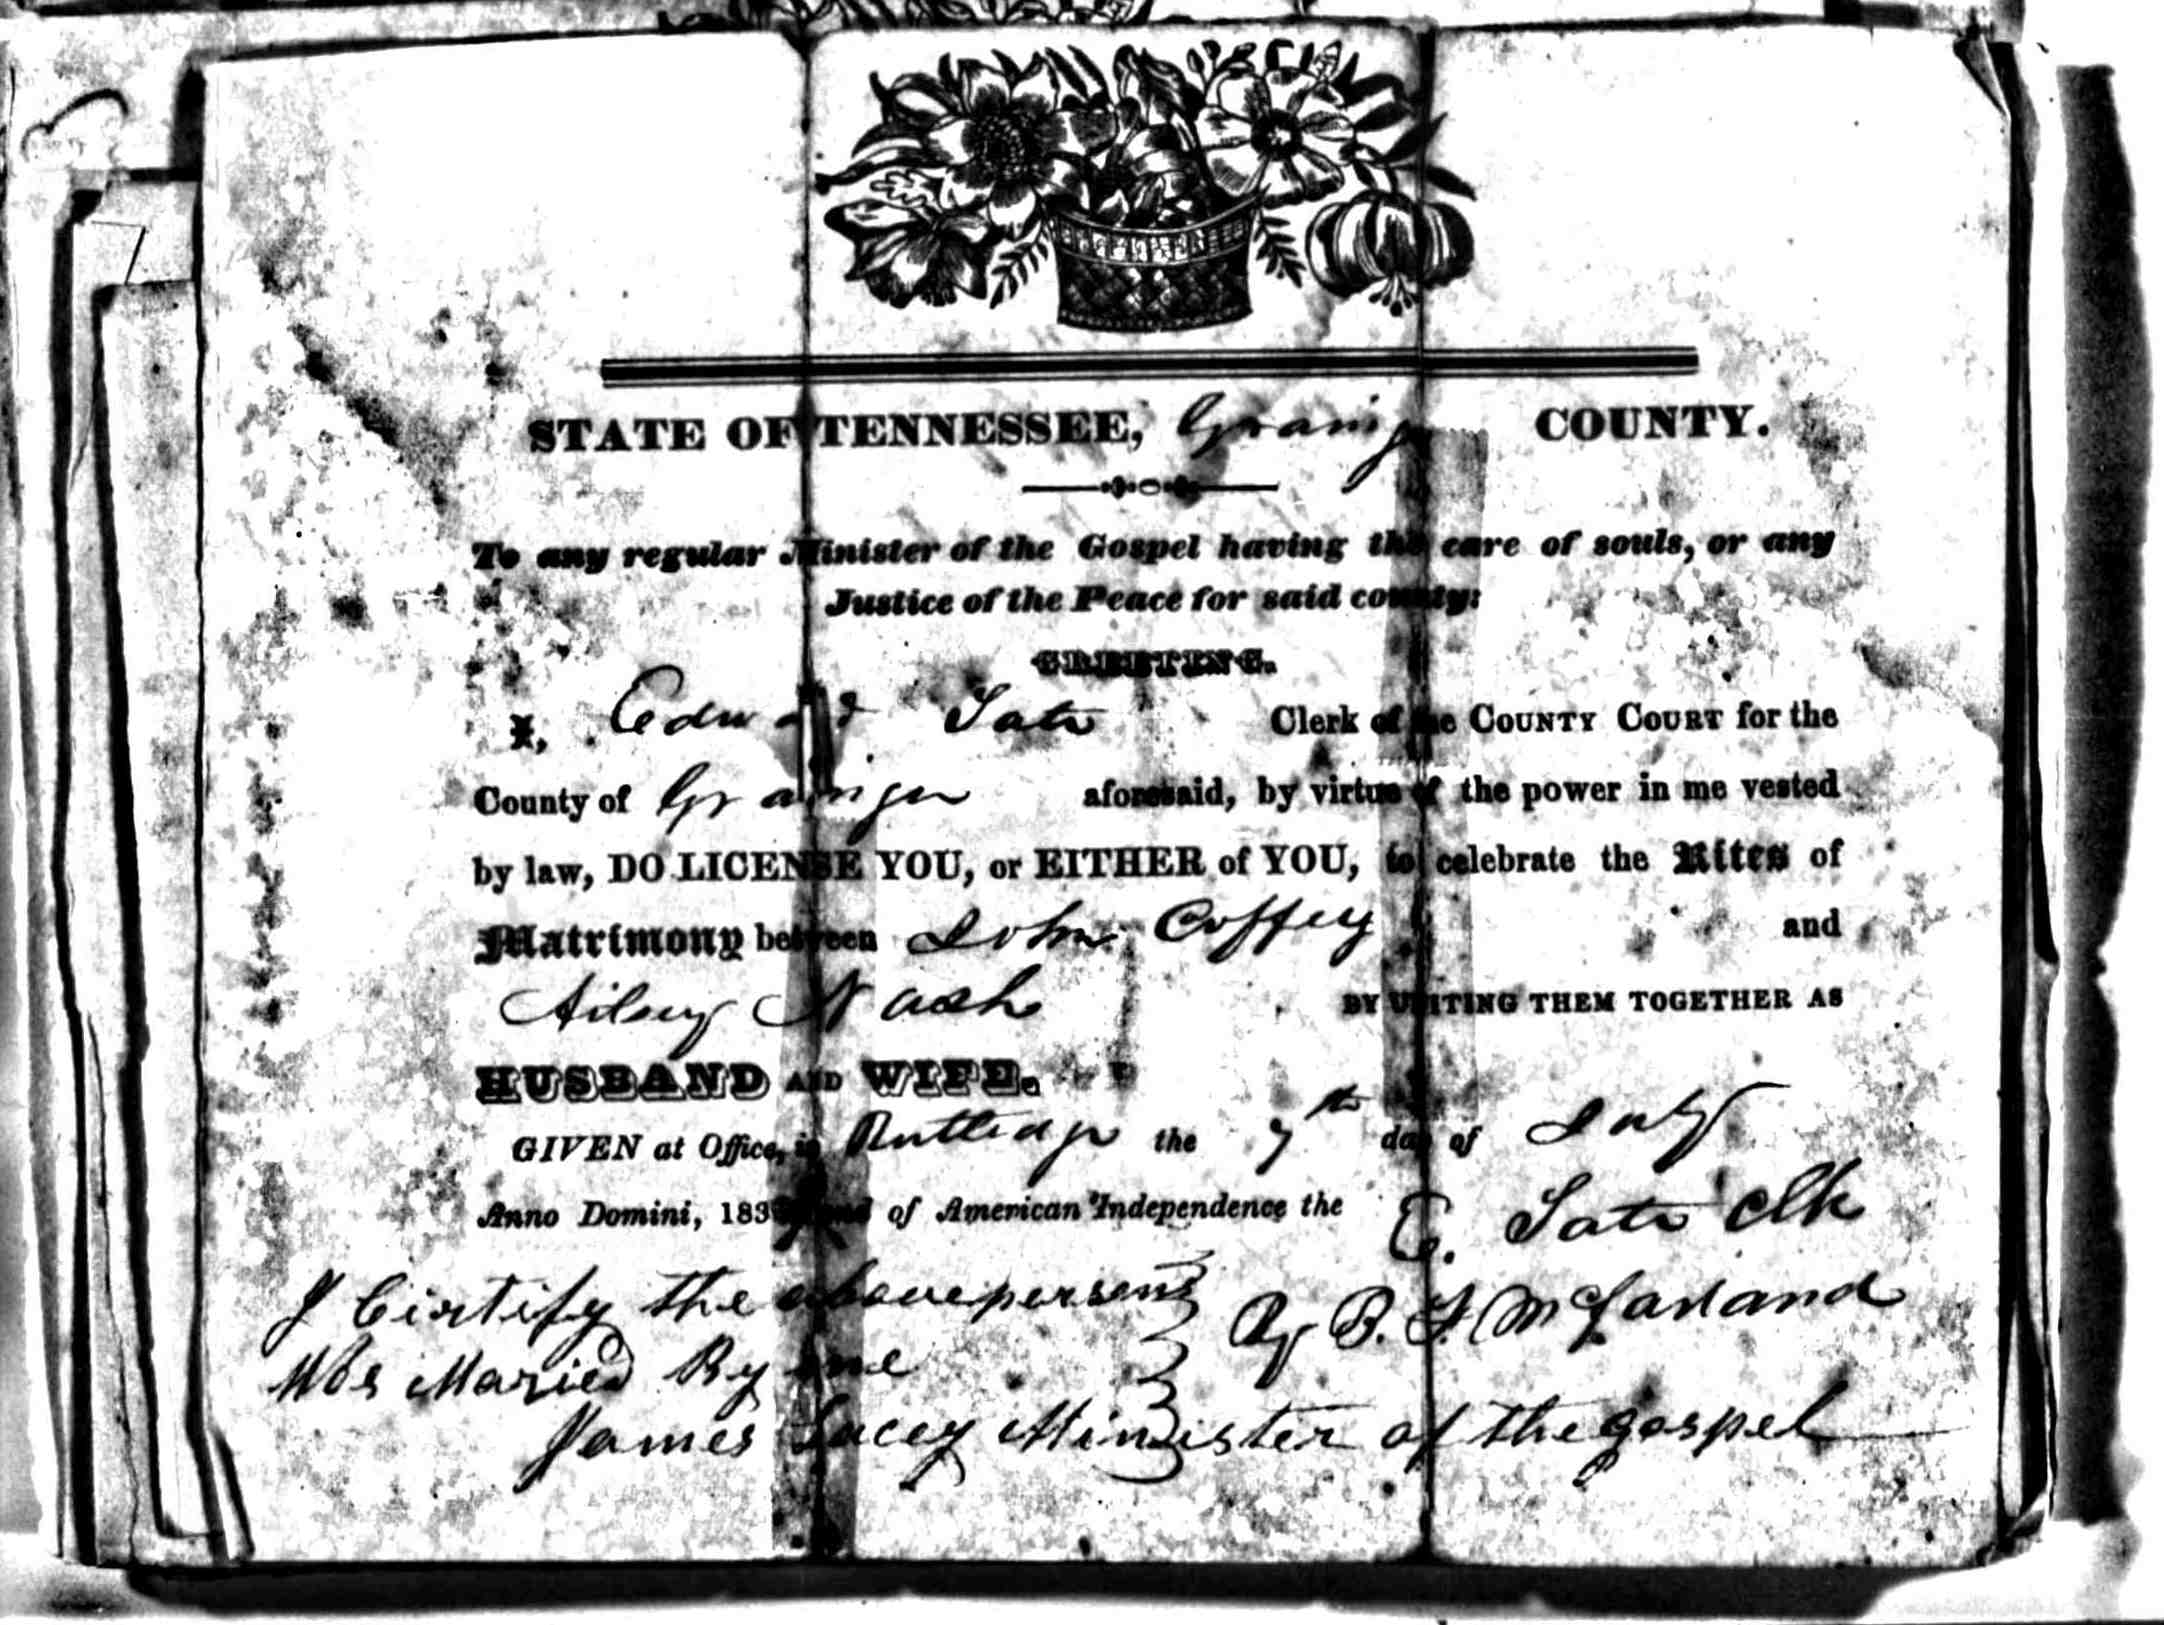 STATE OF TENNESSEE, Grainger COUNTY.
To any regular Minister of the Gospel having the care of souls, or any
Justice of the Peace for said county:
GREETING.
I, Edward Tate Clerk of the COUNTY COURT for the
County of Grainger aforesaid, by virtue of the power in me vested
by law, DO LICENSE YOU, or EITHER of YOU, to celebrate the Rites of
Matrimony between John Coffey and
Ailsey Nash BY UNITING THEM TOGETHER AS
HUSBAND AND WIFE.
GIVEN at Office, in Rutledge the 7th day of July
Anno Domini, 183 and of American Independence the
E. Tate Clk
I Certify the above persons
By B. F. McFarland
Was Maried By me
James Lacey Minister of the gospel